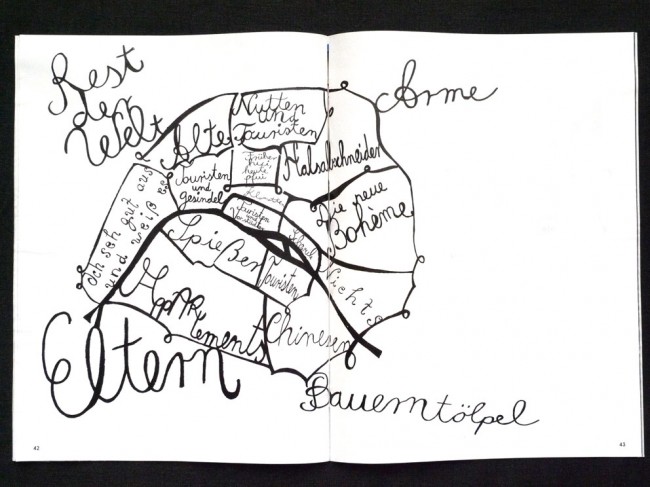 Rest
der
Welt
Arme
Alte
Nutten
und
Touristen
Früher
hui,
heute
pfui
Halsabschneider
Touristen
und
gesindel
Touristen
und
Die neue
Bohème
Ich seh gut aus
und weiß es
Spießer
Touristen
Nichts
Happy
Chinesen
Eltern
Bauerntölpel
42
43